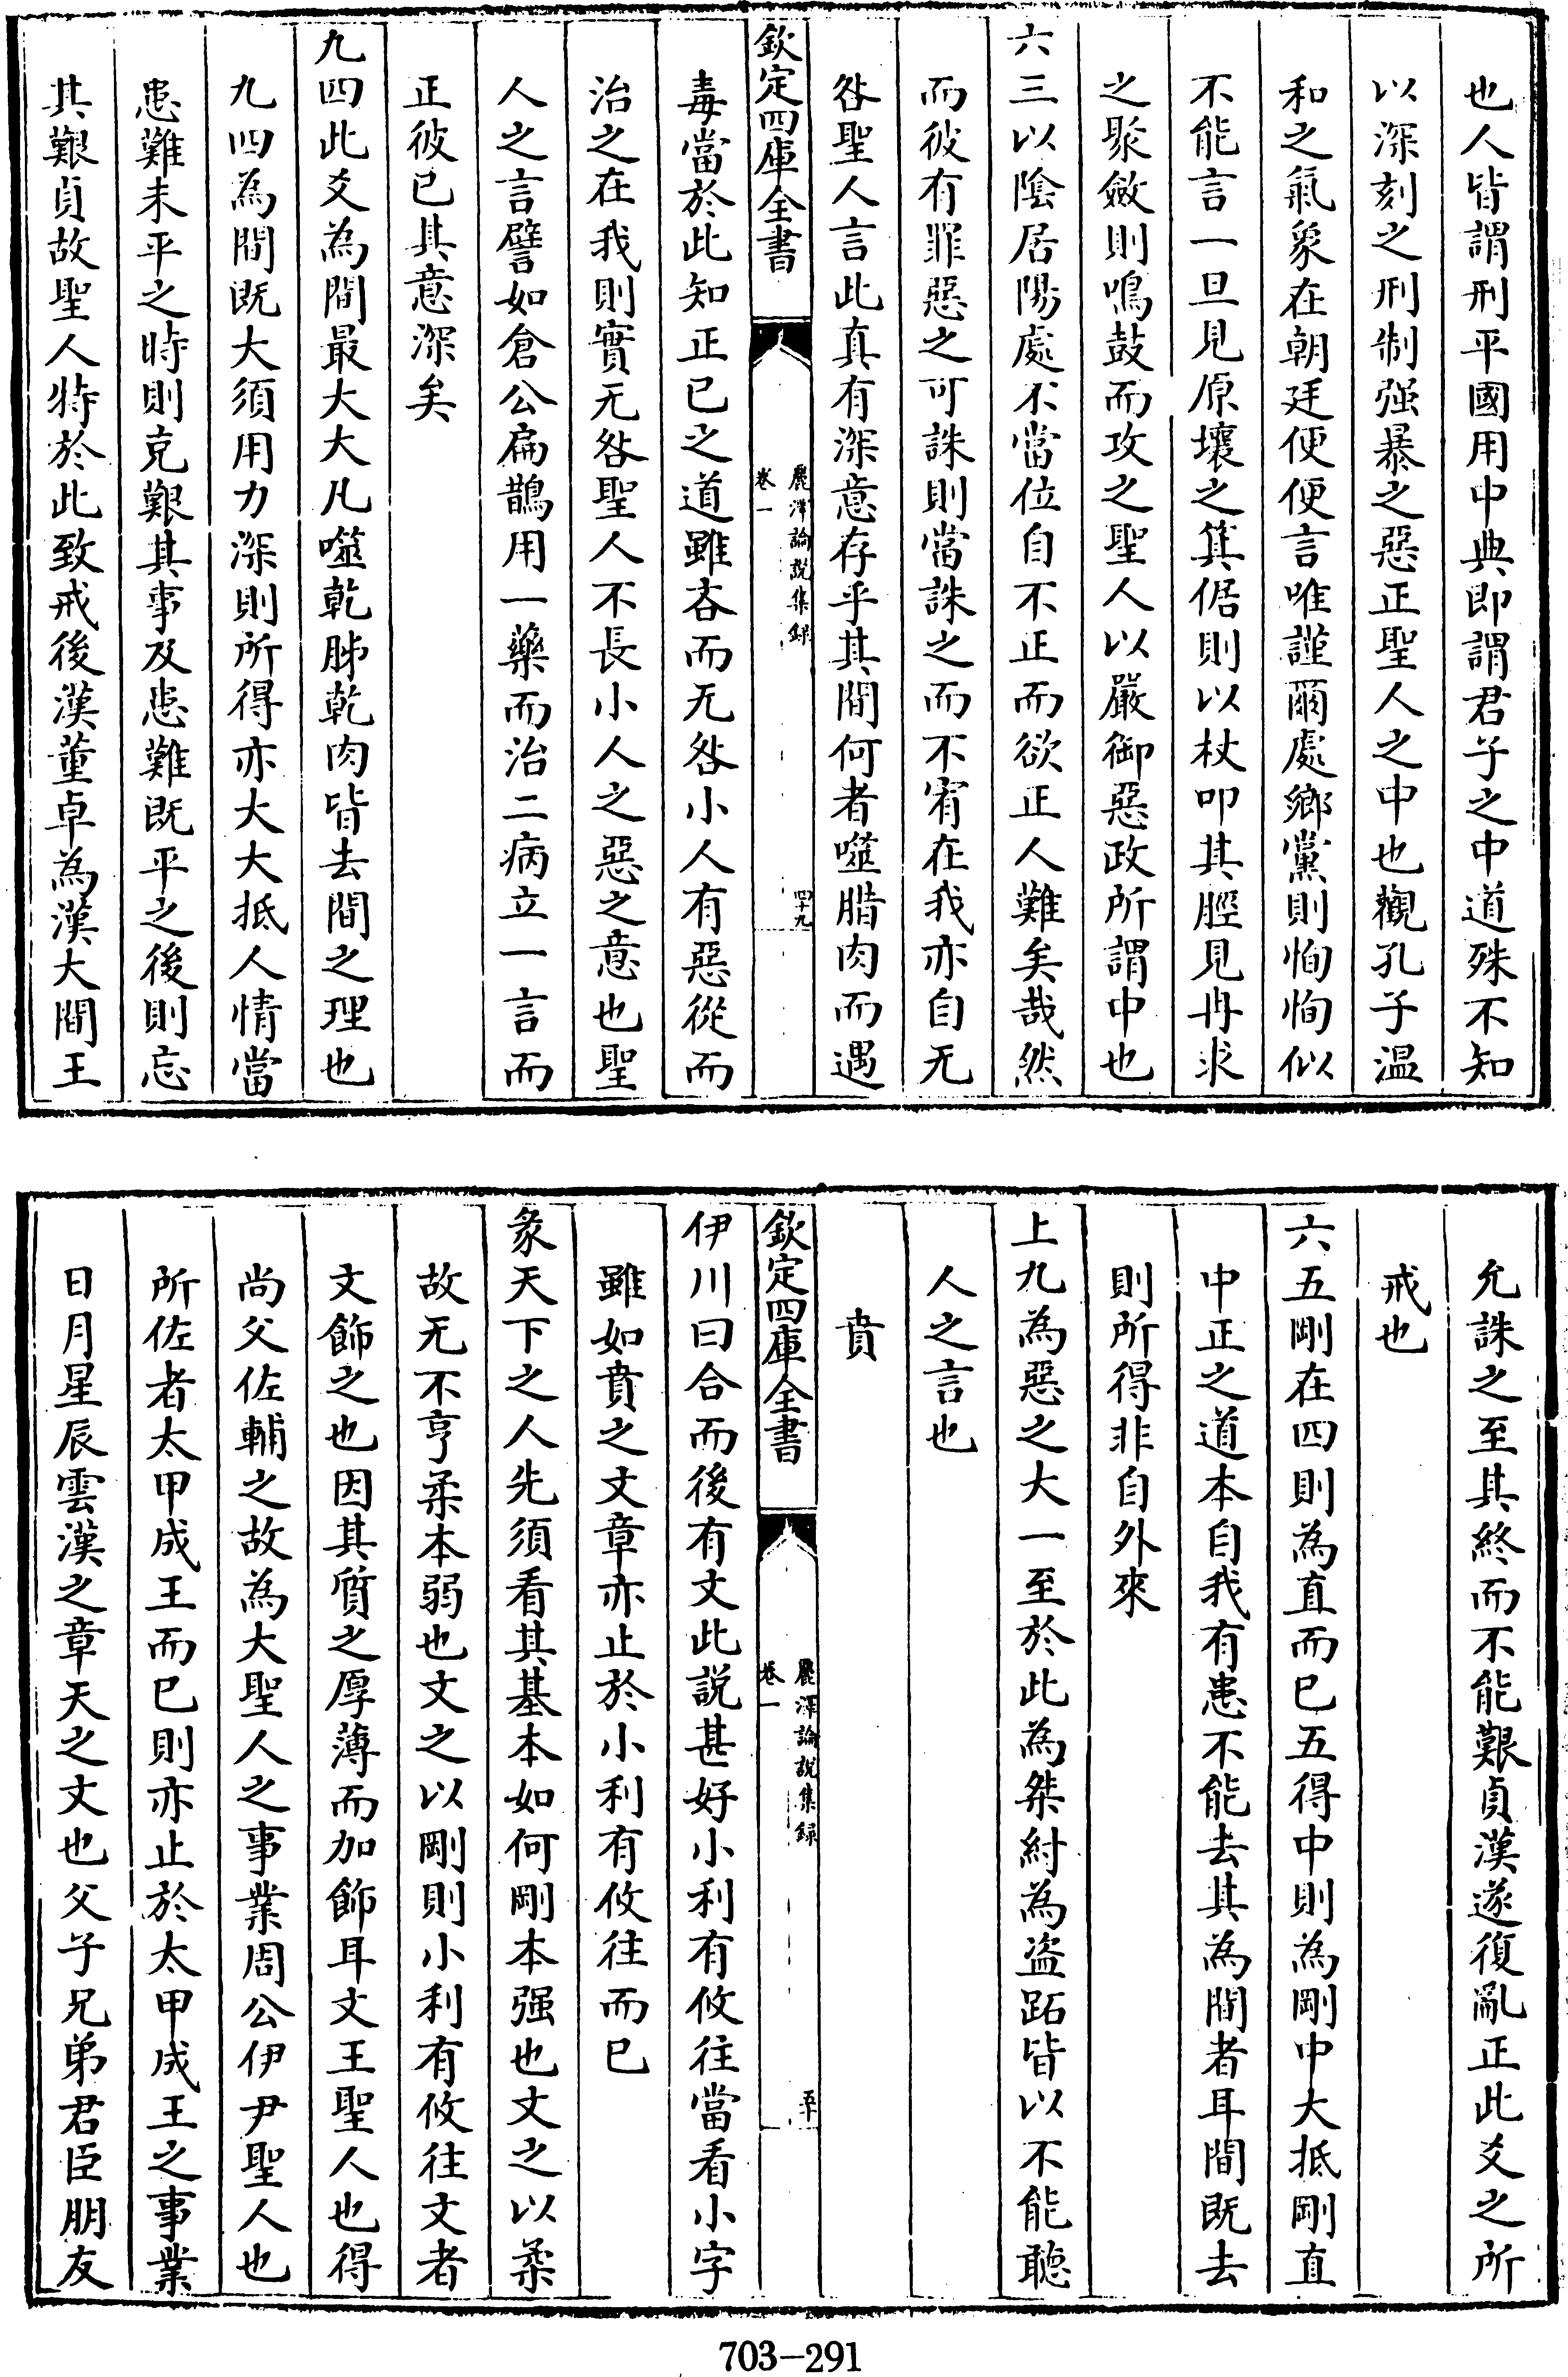 也人皆謂刑平國用中典即謂君子之中道殊不知
以深刻之刑制强暴之惡正聖人之中也觀孔子温
和之氣象在朝廷便便言唯謹爾處鄉黨則恂恂似
不能言一旦見原壤之箕倨則以杖叩其脛見冉求
之聚斂則鳴鼓而攻之聖人以嚴御惡政所謂中也
六三以陰居陽處不當位自不正而欲正人難矣哉然
而彼有罪惡之可誅則當誅之而不宥在我亦自无
咎聖人言此真有深意存乎其間何者噬腊肉而遇
欽定四庫全書
麗澤論説集録
卷一
四十九
毒當於此知正已之道雖吝而无咎小人有惡從而
治之在我則實无咎聖人不長小人之惡之意也聖
人之言譬如倉公扁鵲用一藥而治二病立一言而
正彼已其意深矣
九四此爻為間最大大凡噬乾胏乾肉皆去間之理也
九四為間既大須用力深則所得亦大大抵人情當
患難未平之時則克艱其事及患難既平之後則忘
其艱貞故聖人特於此致戒後漢董卓為漢大間王
允誅之至其終而不能艱貞漢遂復亂正此爻之所
戒也
六五剛在四則為直而已五得中則為剛中大抵剛直
中正之道本自我有患不能去其為間者耳間既去
則所得非自外來
上九為惡之大一至於此為桀紂為盗跖皆以不能聽
人之言也
賁
欽定四庫全書
麗澤論説集録
卷一
五十
伊川曰合而後有文此説甚好小利有攸往當看小字
雖如賁之文章亦止於小利有攸往而已
彖天下之人先須看其基本如何剛本强也文之以柔
故无不亨柔本弱也文之以剛則小利有攸往文者
文飾之也因其質之厚薄而加飾耳文王聖人也得
尚父佐輔之故為大聖人之事業周公伊尹聖人也
所佐者太甲成王而已則亦止於太甲成王之事業
日月星辰雲漢之章天之文也父子兄弟君臣朋友
703-291